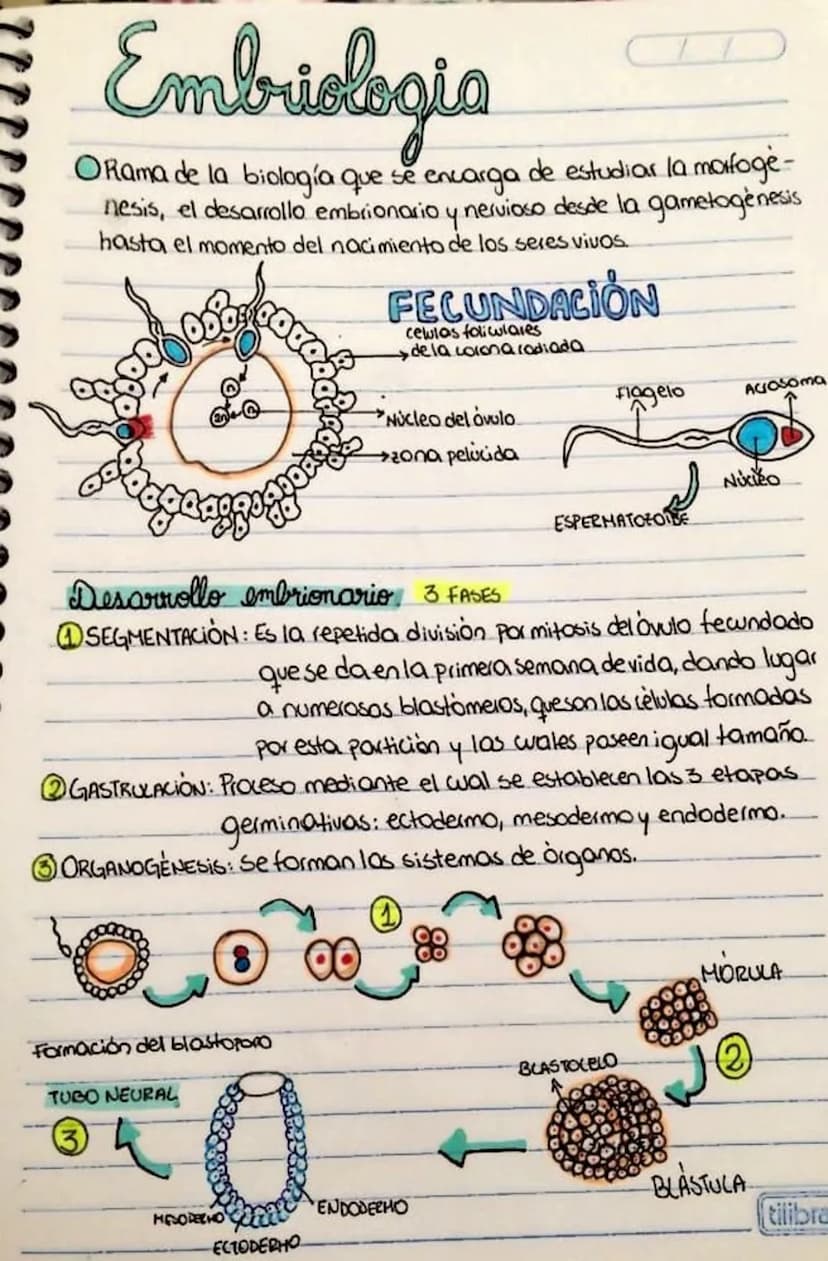 Embriologia
Rama de la biología que se encarga de estudiar la morfogè-
nesis, el desarrollo embrionario y nervioso desde la gametogènesis
hasta el momento del nacimiento de los seres vivos.
FECUNDACIÓN
celulas foliculares
de la corona radiada
Núcleo del óvulo
zona pelùcida
n
n
2n
Flagelo
Acrosoma
Núcleo
ESPERMATOZOIDE
Desarrollo embrionario. 3 FASES
1 SEGMENTACIÒN: Es la repetida divisiòn por mitosis del òvulo fecundado
que se da en la primera semana de vida, dando lugar
a numerosos blastòmeros, que son las cèlulas formadas
por esta particiòn y las cuales poseen igual tamaño.
2 GASTRULACIÒN: Proceso mediante el cual se establecen las 3 etapas
germinativas: ectodermo, mesodermo y endodermo.
3 ORGANOGÈNESIS: se forman los sistemas de òrganos.
1
MÒRULA
2
Formaciòn del blastoporo
BLASTOCELO
TUBO NEURAL
3
BLÀSTULA
MESODERMO
ENDODERMO
ECTODERMO
tilibra